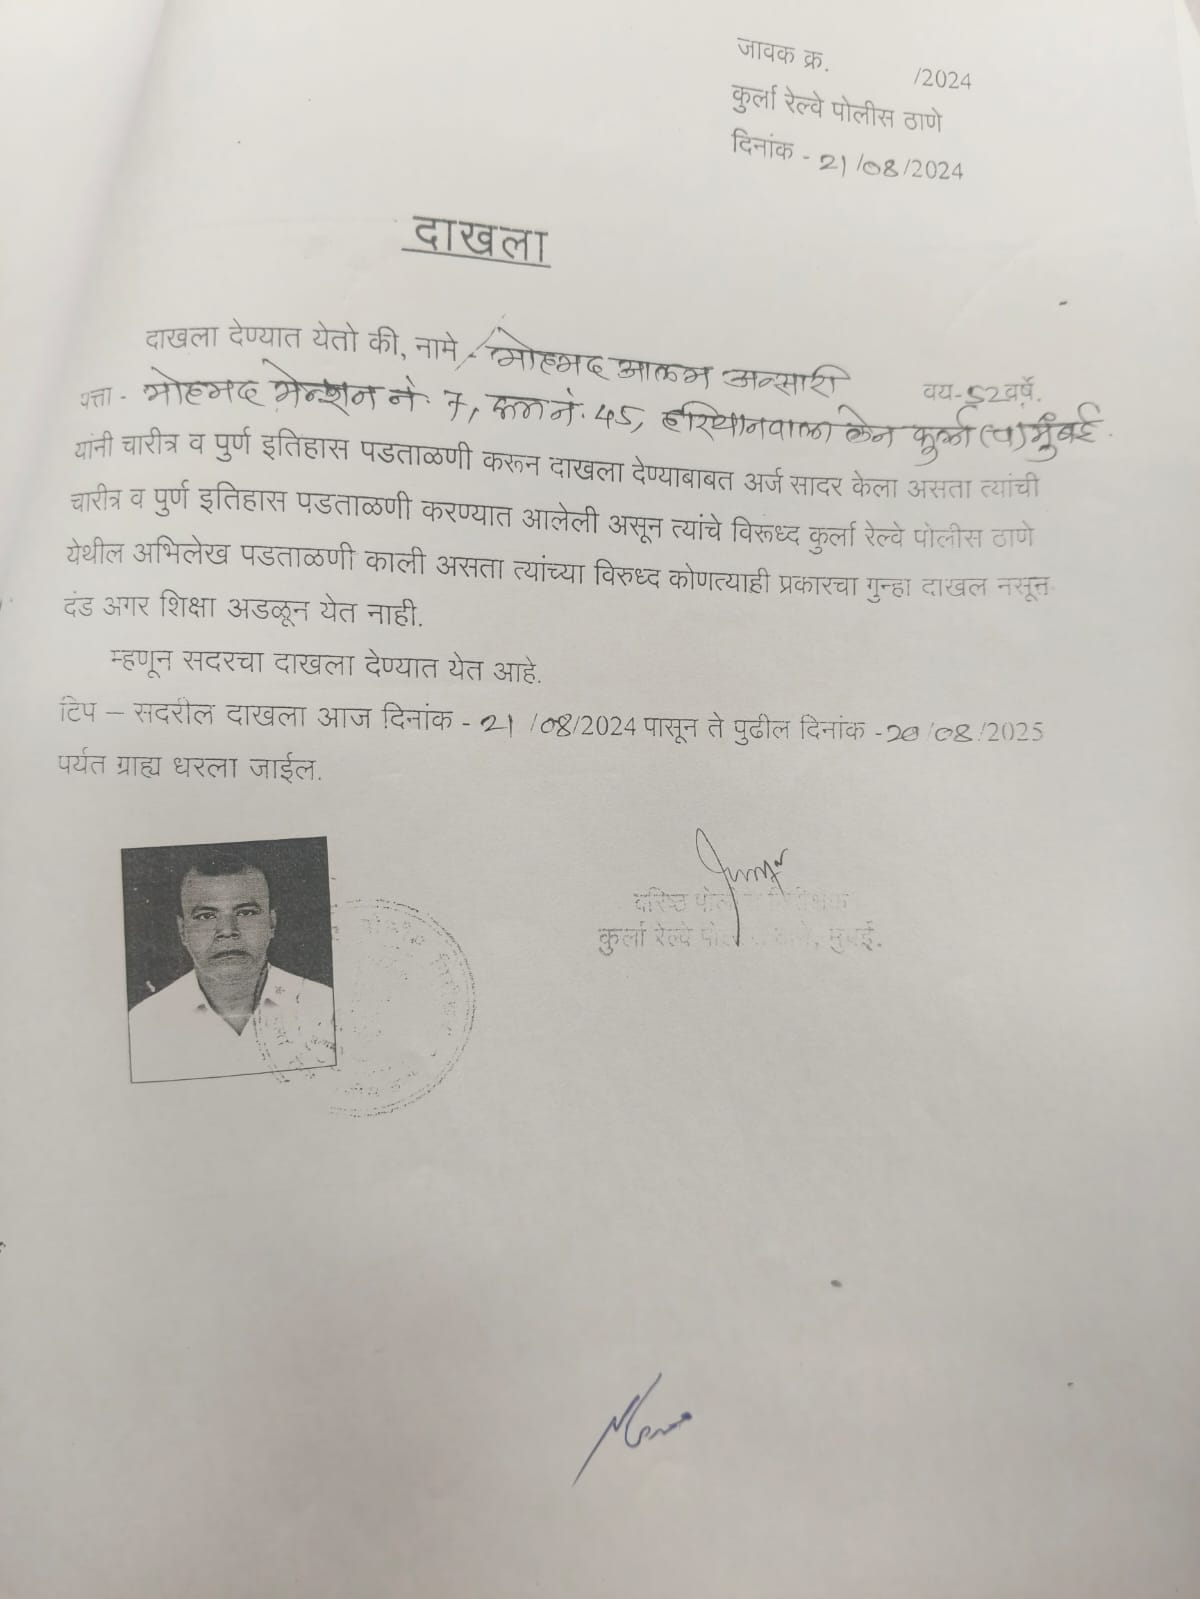 जावक क्र. /2024
कुर्ला रेल्वे पोलीस ठाणे
दिनांक - 21/08/2024
दाखला
दाखला देण्यात येतो की, नामे - मोहमद आलम अन्सारी वय-52वर्षे.
पत्ता - मोहमद मेन्शन नं. 7, रूम नं. 45, हरियानवाला लेन कुर्ला (प) मुंबई.
यांनी चारीत्र व पुर्ण इतिहास पडताळणी करून दाखला देण्याबाबत अर्ज सादर केला असता त्यांची
चारीत्र व पुर्ण इतिहास पडताळणी करण्यात आलेली असून त्यांचे विरूध्द कुर्ला रेल्वे पोलीस ठाणे
येथील अभिलेख पडताळणी काली असता त्यांच्या विरुध्द कोणत्याही प्रकारचा गुन्हा दाखल नसून
दंड अगर शिक्षा अडळून येत नाही.
म्हणून सदरचा दाखला देण्यात येत आहे.
टिप – सदरील दाखला आज दिनांक - 21/08/2024 पासून ते पुढील दिनांक -20/08/2025
पर्यत ग्राह्य धरला जाईल.
वरिष्ठ पोलीस निरीक्षक
कुर्ला रेल्वे पोलीस ठाणे, मुंबई.